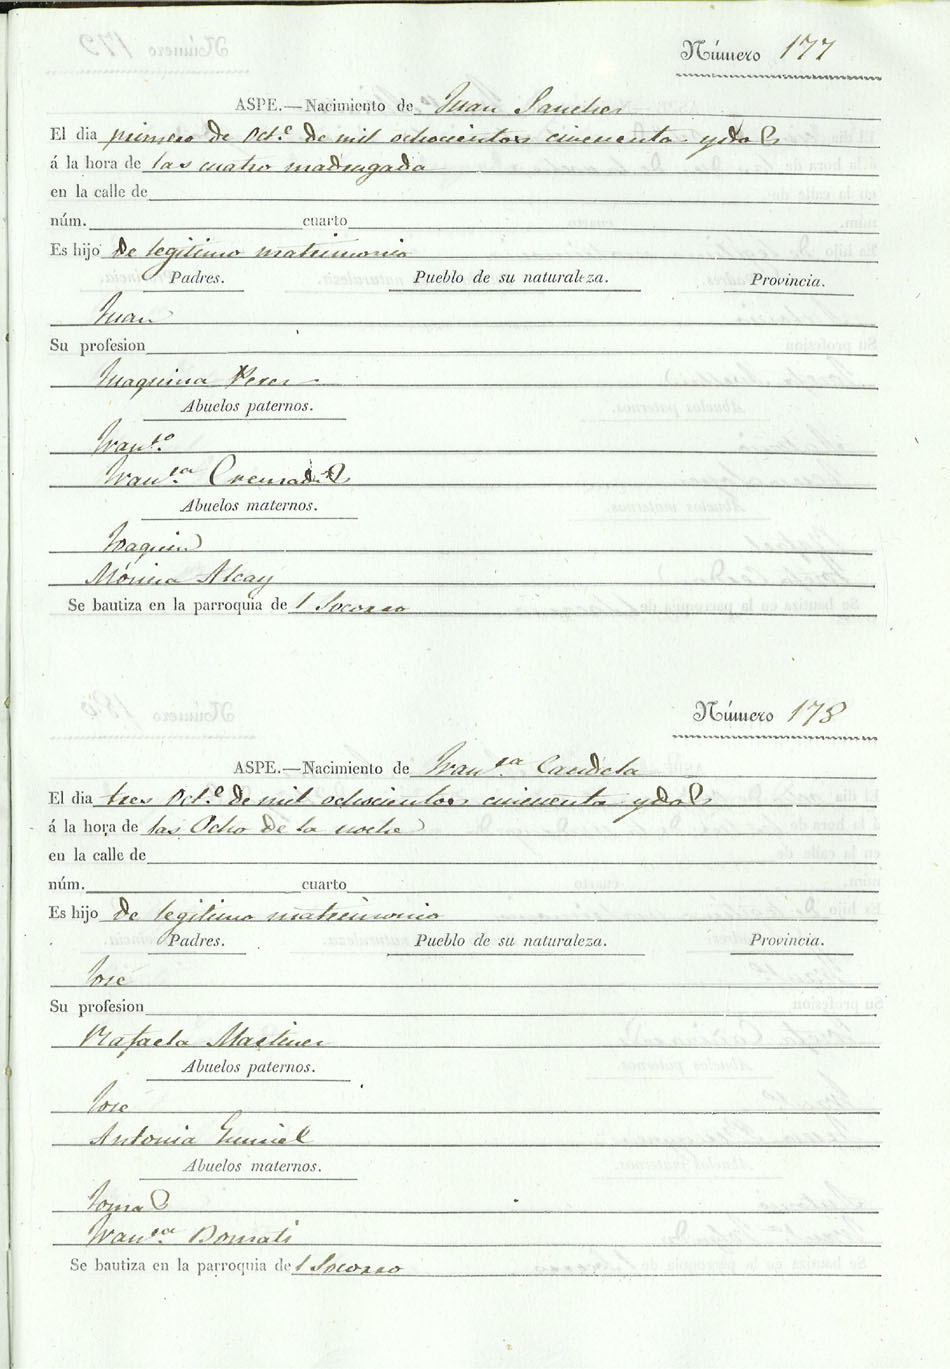 Número 177
ASPE.—Nacimiento de Juan Sanches
El dia primero de Oct.e de mil ochocientos cincuenta y dos
á la hora de las cuatro madrugada
en la calle de
núm. cuarto
Es hijo de legitimo matrimonio
Padres. Pueblo de su naturaleza. Provincia.
Juan
Su profesion
Juaquina Peres
Abuelos paternos.
Fran.co
Fran.ca
Abuelos maternos.
Joaquin
Mónica Alcay
Se bautiza en la parroquia de l Socorro
Número 178
ASPE.—Nacimiento de Fran.ca Candela
El dia tres Oct.e de mil ochocientos cincuenta y dos
á la hora de las Ocho de la noche
en la calle de
núm. cuarto
Es hijo de legitimo matrimonio
Padres. Pueblo de su naturaleza. Provincia.
José
Su profesion
Rafaela Martines
Abuelos paternos.
José
Antonia
Abuelos maternos.
Tomas
Fran.ca Bonati
Se bautiza en la parroquia de l Socorro